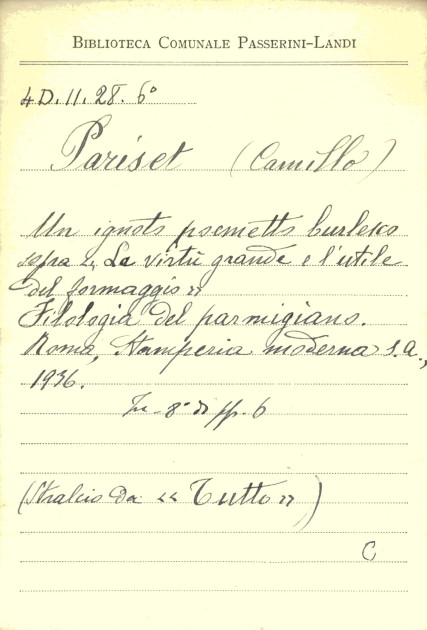 BIBLIOTECA COMUNALE PASSERINI-LANDI
4D.11.28.6°
Pariset (Camillo)
Un ignoto poemetto burlesco
sopra « La virtù grande e l'utile
del formaggio »
Filologia del parmigiano.
Roma, Stamperia moderna s.a.,
1936.
In-8° di pp. 6
(Stralcio da « Tutto »)
C